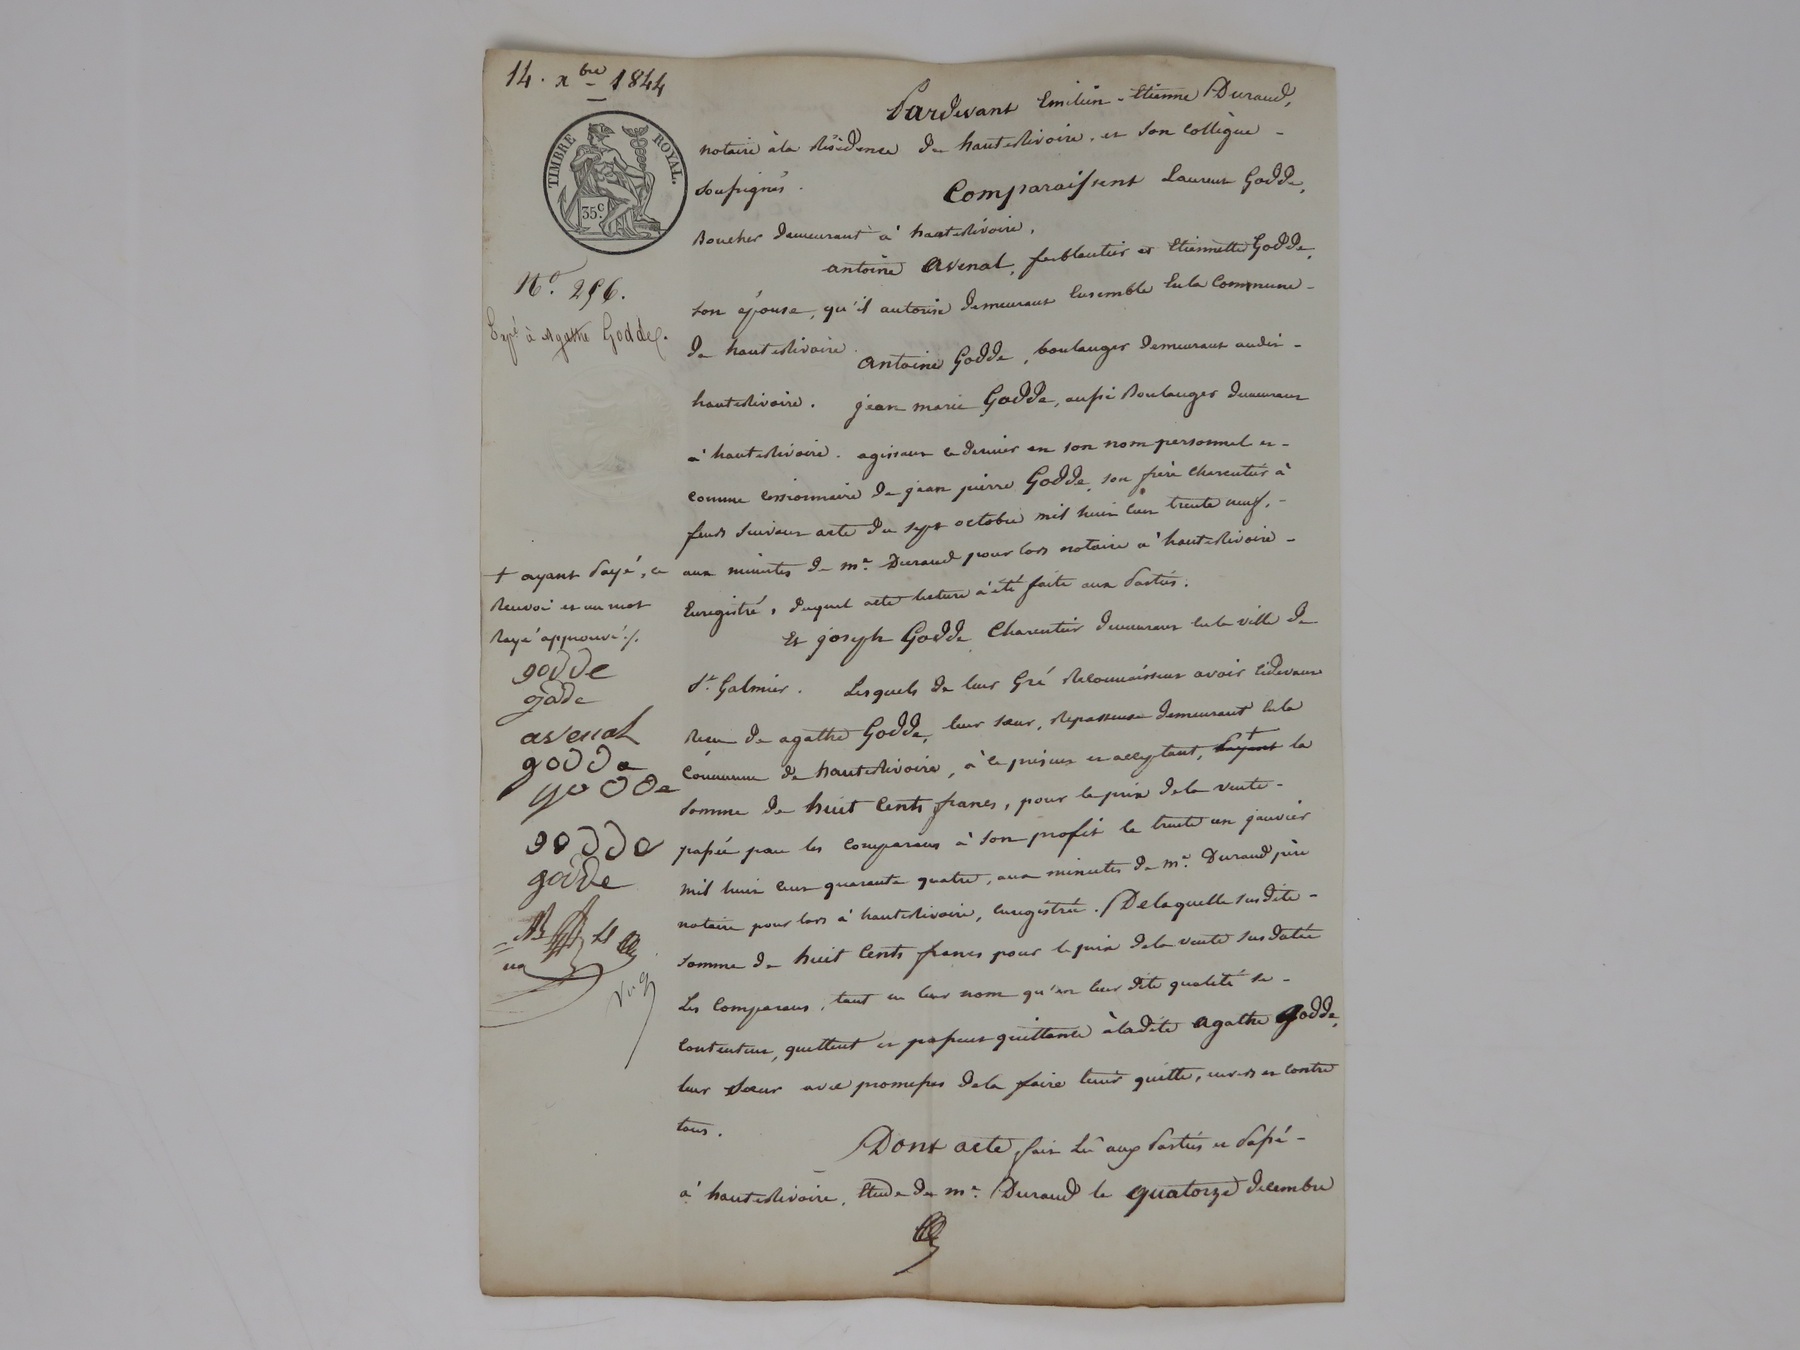 14. xbre 1844
TIMBRE ROYAL.
35c
No. 256.
Expé à Agathe Godde.
Pardevant Emilien-Etienne Durand,
notaire à la Résidence de hauteRivoire. et son collègue
soussignés.
Comparaissent Laurent Godde,
Boucher demeurant à hauteRivoire,
antoine avenal, ferblantier et Etiennette Godde,
son épouse, qu'il autorise demeurant Ensemble En la Commune
de hauteRivoire.
antoine Godde, boulanger demeurant audit
hauteRivoire. jean marie Godde, aussi Boulanger demeurant
à hauteRivoire. agissant ce dernier en son nom personnel et
comme cessionnaire de jean pierre Godde, son frère Charcutier à
feurs suivant acte du sept octobre mil huit cent trente neuf,
aux minutes de me. Durand pour lors notaire à hauteRivoire
Enregistré, duquel acte lecture a été faite aux Parties.
Et joseph Godde Charcutier demeurant En la ville de
St. Galmier. Lesquels de leur Gré Reconnaissent avoir cidevant
Reçu de agathe Godde, leur sœur, Repasseuse demeurant En la
Commune de hauteRivoire, à ce présent et acceptant, payant + la
somme de huit Cents francs, pour le prix de la vente
passée par les comparans à son profit le trente un janvier
mil huit cent quarante quatre, aux minutes de me. Durand père
notaire pour lors à hauteRivoire, Enregistrée. De laquelle susdite
somme de huit Cents francs pour le prix de la vente susdatée
Les Comparans, tant en leur nom qu'en leur dite qualité se
Contentent, quittent et passent quittance à ladite agathe Godde,
leur sœur avec promesses de la faire tenir quitte, envers et contre
tous.
Dont acte, fait Lû aux Parties et Passé
à hauteRivoire, Etude de me. Durand le quatorze décembre
+ ayant Payé, ce
Renvoi et un mot
Rayé approuvé ./.
godde
gode
avenal
godde
godde
godde
godde